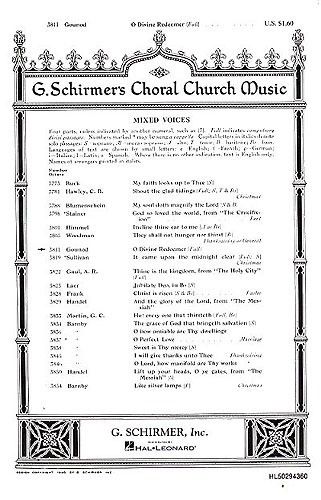 5811 Gounod O Divine Redeemer (Full) U.S. $1.60
G. Schirmer's Choral Church Music
MIXED VOICES
Four parts, unless indicated by another numeral, such as [7]. Full indicates
Numbers marked * may be sung a cappella. Capital letters in italics denote
solo passages: S: soprano, M: mezzo-soprano, A: alto, T: tenor, B: baritone, Bs: bass.
Languages of text are shown by small letters: e: English; f: French; g: German;
i: Italian; l: Latin; s: Spanish. Where there is no other indication, text is English only.
Names of arrangers are printed in italics.
Number
Octavo
Buck My faith looks up to Thee [S]
Hawley, C. B. Shout the glad tidings
Christmas
5788 Blumenschein My soul doth magnify the Lord
5798 *Stainer God so loved the world, from "The Crucifixion"
Lent
5801 Himmel Incline thine ear to me
Woodman They shall not hunger nor thirst
Thanksgiving or General
5811 Gounod O Divine Redeemer [Full]
5819 *Sullivan It came upon the midnight clear
Christmas
5822 Gaul, A. R. Thine is the kingdom, from "The Holy City"
[Full]
5825 Jubilate Deo, in
5828 Frank Christ is risen Easter
5829 Handel And the glory of the Lord, from "The Messiah"
5833 Martin, G. C. Ho! every one that thirsteth
5834 Barnby The grace of God that bringeth salvation [S]
O how amiable are Thy dwellings
5837 " O Perfect Love Marriage
5838 " Sweet is Thy mercy [S]
" I will give thanks unto Thee Thanksgiving
" O Lord, how manifold are Thy works "
5850 Handel Lift up your heads, O ye gates, from "The Messiah"
5854 Barnby Like silver lamps Christmas
G. SCHIRMER, Inc.
DISTRIBUTED BY
HAL•LEONARD
HL50294360